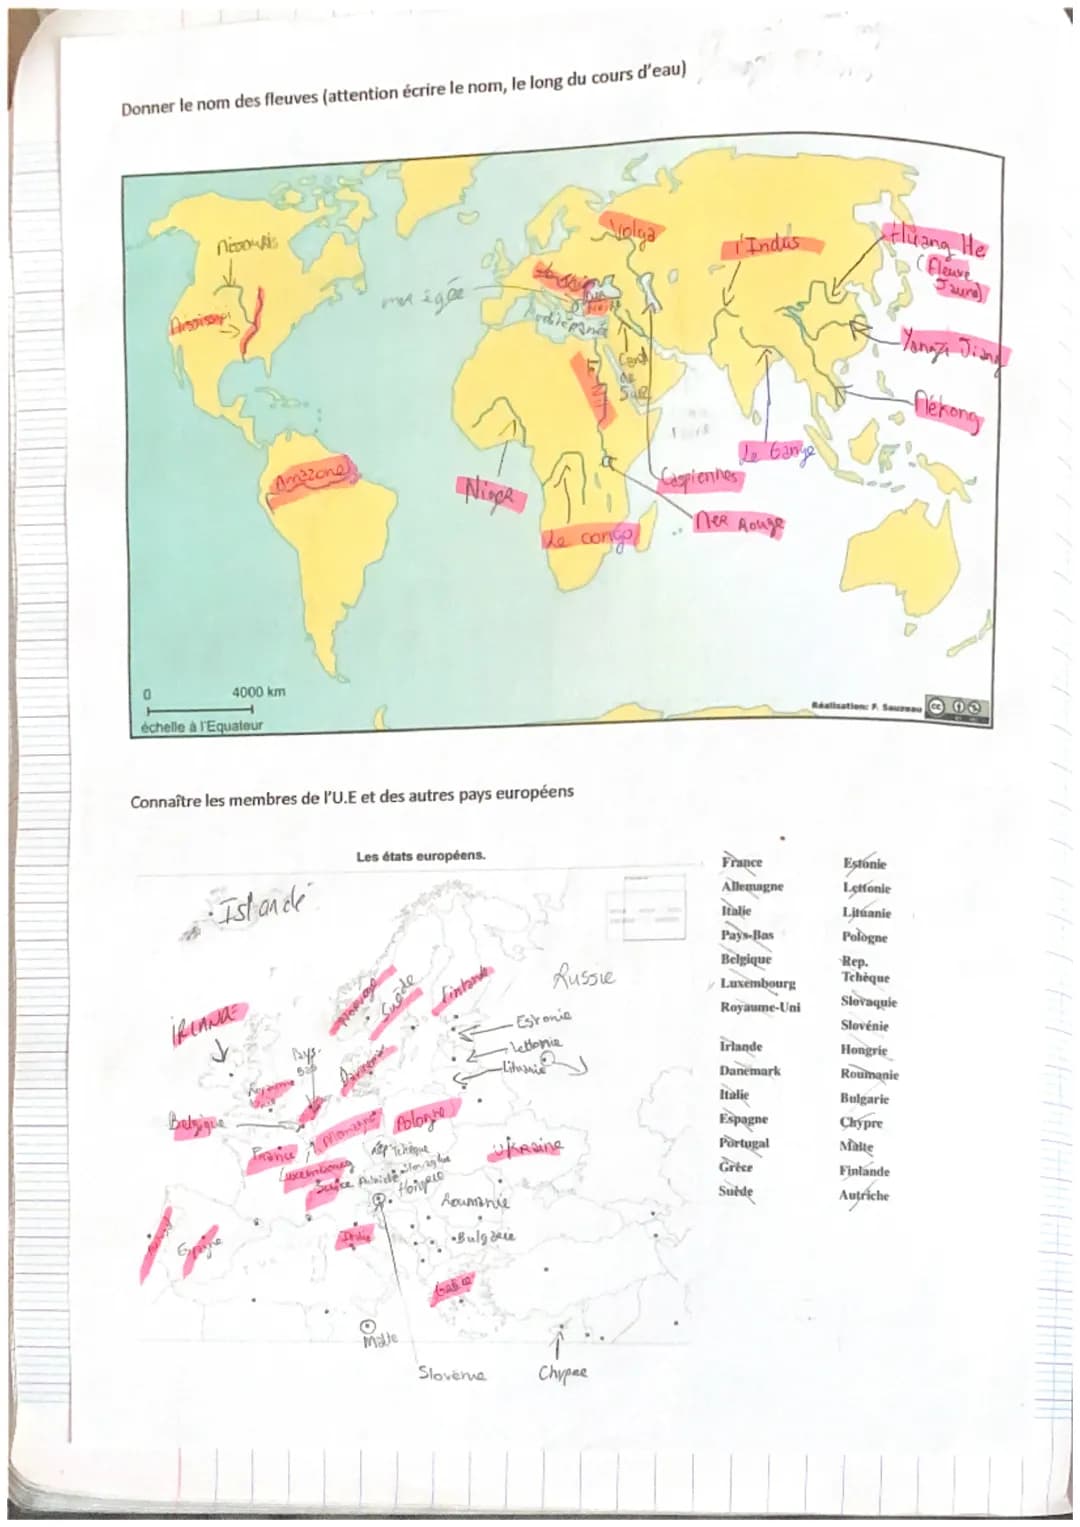 Donner le nom des fleuves (attention écrire le nom, le long du cours d'eau)
Missouris
Mississipi
mer égée
Volga
l'Indus
Huang He
(Fleuve
Jaune)
Yangzi Jiang
Mékong
Canal
de
Suez
Le Gange
Caspiennes
Mer Rouge
Amazone
Niger
Le congo
0 4000 km
échelle à l'Equateur
Réalisation: F. Sauzeau
cc
Connaître les membres de l'U.E et des autres pays européens
Les états européens.
Islande
Norvège
Suède
Finlande
Russie
IRLANDE
Estonie
Lettonie
Lituanie
Pays-
Bas
Royaume
Danemark
Belgique
Pologne
France
Luxembourg
Rep Tchèque
Ukraine
Suisse
Hongrie
Roumanie
Bulgarie
Espagne
Italie
Grèce
Malte
Slovénie
Chypre
France
Allemagne
Italie
Pays-Bas
Belgique
Luxembourg
Royaume-Uni
Irlande
Danemark
Italie
Espagne
Portugal
Grèce
Suède
Estonie
Lettonie
Lituanie
Pologne
Rep.
Tchèque
Slovaquie
Slovénie
Hongrie
Roumanie
Bulgarie
Chypre
Malte
Finlande
Autriche